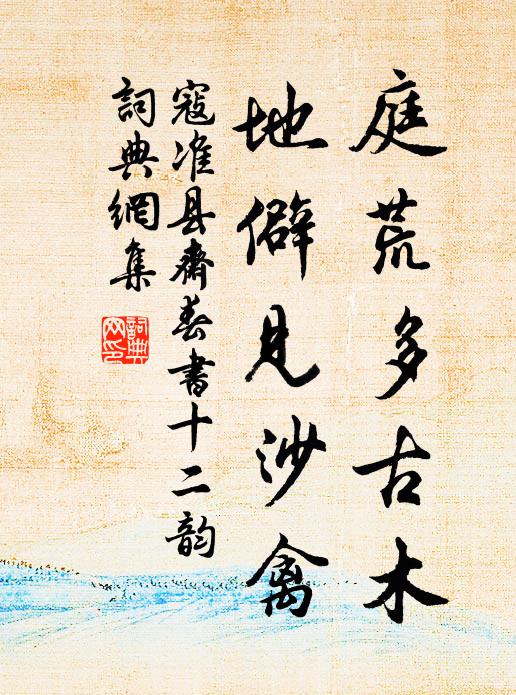 庭荒多古木
地僻見沙禽
寇准县齋春書十二韵
詞典網集
詞典網印